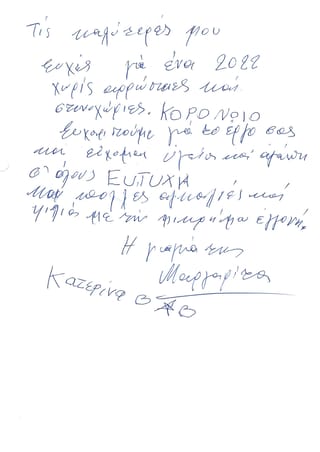 Τις καλύτερές μου
Ευχές γιά ένα 2022
χωρίς αρρώστιες και
στενοχώριες. ΚΟΡΟΝΟΙΟ
Ευχαριστούμε γιά το έργο σας
και εύχομαι υγεία και αγάπη
σ' όλους ΕΥΤΥΧΙΑ
και πολλές αγκαλιές και
φιλιά με την μικρή μου εγγονή.
Η γιαγιά της
Κατερίνα Β Μαργαρίτα
Β